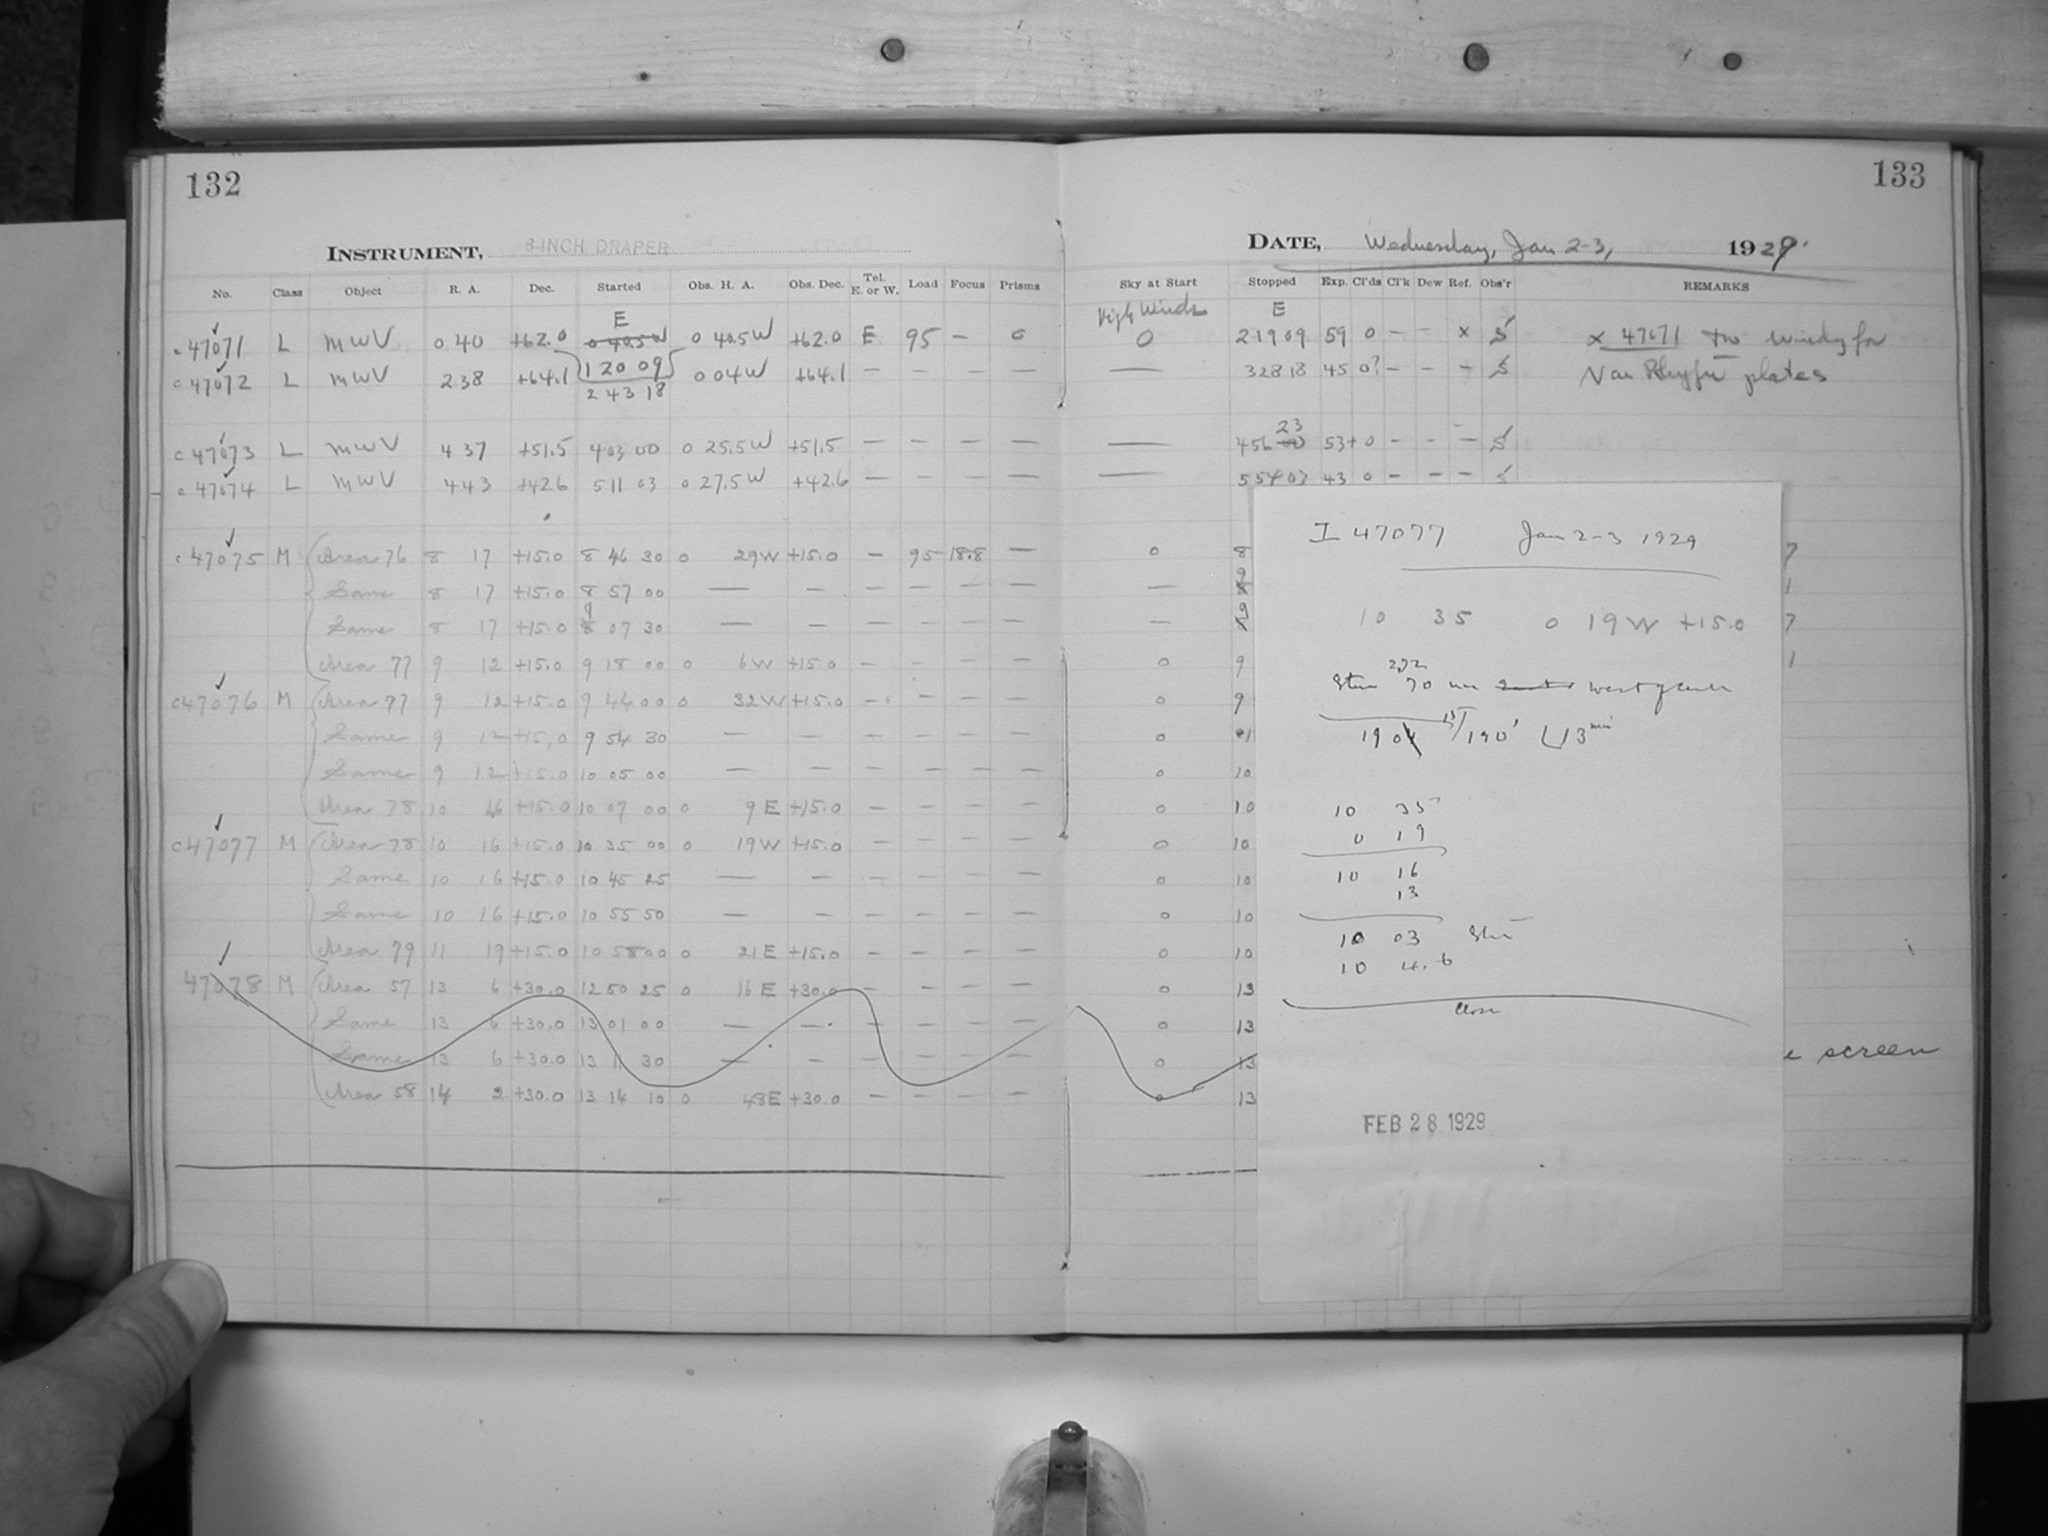 132
INSTRUMENT, 8-INCH DRAPER
No. Class Object R. A. Dec. Started Obs. H. A. Obs. Dec. Tel. E. or W. Load Focus Prisms
E
c 47071 L MWV 0 40 +62.0 0 40.5W 0 40.5W +62.0 E 95 - 0
c 47072 L MWV 2 38 +64.1 1 20 09 0 04W +64.1 - - - -
2 43 18
c 47073 L MWV 4 37 +51.5 4 03 00 0 25.5W +51.5 - - - -
c 47074 L MWV 4 43 +42.6 5 11 03 0 27.5W +42.6 - - - -
c 47075 M Area 76 8 17 +15.0 8 46 30 0 29W +15.0 - 95 18.8 -
Same 8 17 +15.0 8 57 00 - - - - - -
9
Same 8 17 +15.0 8 07 30 - - - - - -
Area 77 9 12 +15.0 9 18 00 0 6W +15.0 - - - -
c47076 M Area 77 9 12 +15.0 9 44 00 0 32W +15.0 - - - -
Same 9 12 +15.0 9 54 30 - - - - - -
Same 9 12 +15.0 10 05 00 - - - - - -
Area 78 10 16 +15.0 10 07 00 0 9E +15.0 - - - -
c47077 M Area 78 10 16 +15.0 10 35 00 0 19W +15.0 - - - -
Same 10 16 +15.0 10 45 25 - - - - - -
Same 10 16 +15.0 10 55 50 - - - - - -
Area 79 11 19 +15.0 10 58 00 0 21E +15.0 - - - -
47078 M Area 57 13 6 +30.0 12 50 25 0 16E +30.0 - - - -
Same 13 6 +30.0 13 01 00 - - - - - -
Same 13 6 +30.0 13 11 30 - - - - - -
Area 58 14 2 +30.0 13 14 10 0 48E +30.0 - - - -
133
DATE, Wednesday, Jan 2-3, 1929.
Sky at Start Stopped Exp. Cl'ds Cl'k Dew Ref. Obs'r REMARKS
High Winds E
0 2 19 09 59 0 - - x S x 47071 too windy for
- 3 28 18 45 0? - - - S plates
23
- 4 56 00 53+ 0 - - - S
- 5 54 03 43 0 - - - S
0 8 7
9
- 8 1
9
- 8 7
0 9 1
0 9
0
0 10
0 10
0 10
0 10
0 10
0 10
0 13
0 13
0 13 screen
0 13
I 47077 Jan 2-3 1929
10 35 0 19W +15.0
70 west of
190 15/190' 13 min
10 35
0 19
10 16
13
10 03
10 4.6
FEB 28 1929